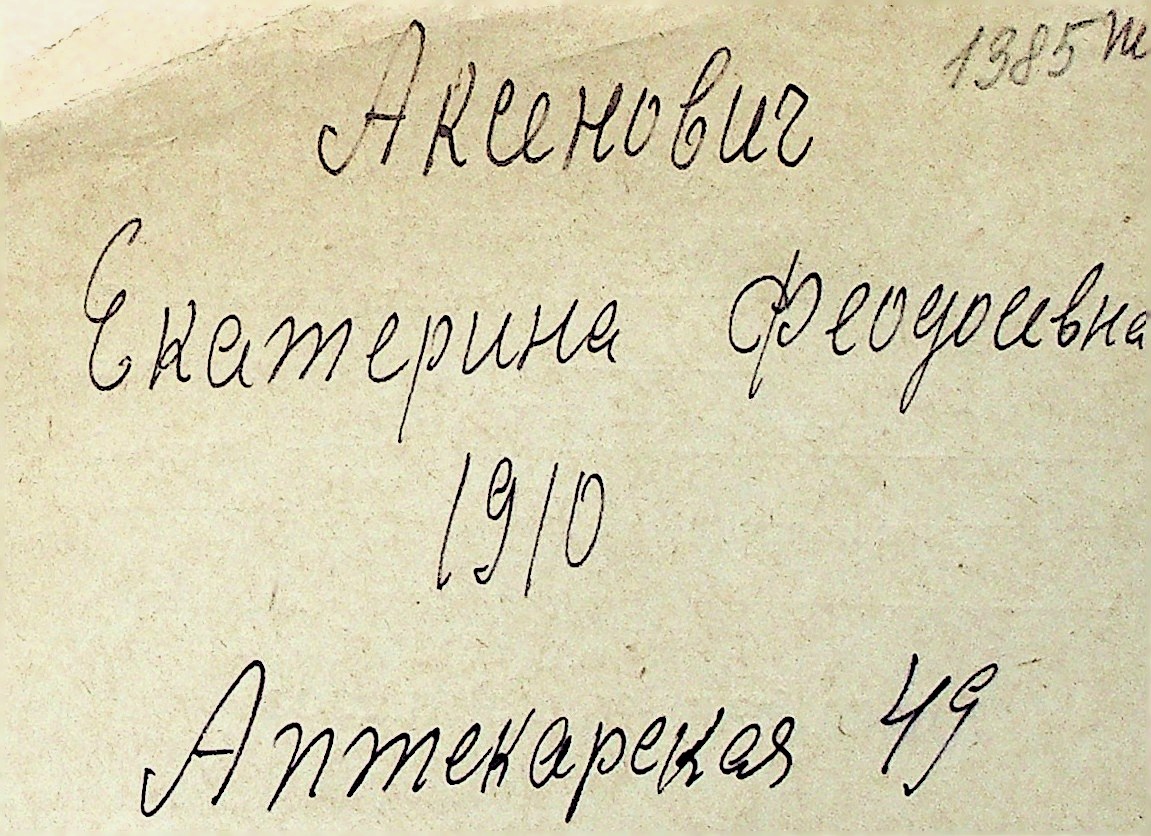 1985 т
Аксенович
Екатерина Феодосивна
1910
Аптекарская 49